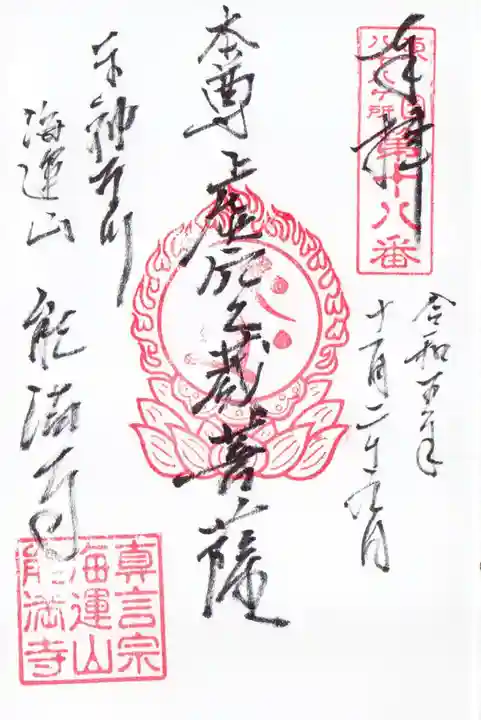 奉拝
東国
八十八ヶ所
第十八番
令和五年
十一月二十九日
本尊 虚空蔵菩薩
東神奈川
海運山 能満寺
真言宗
海運山
能満寺